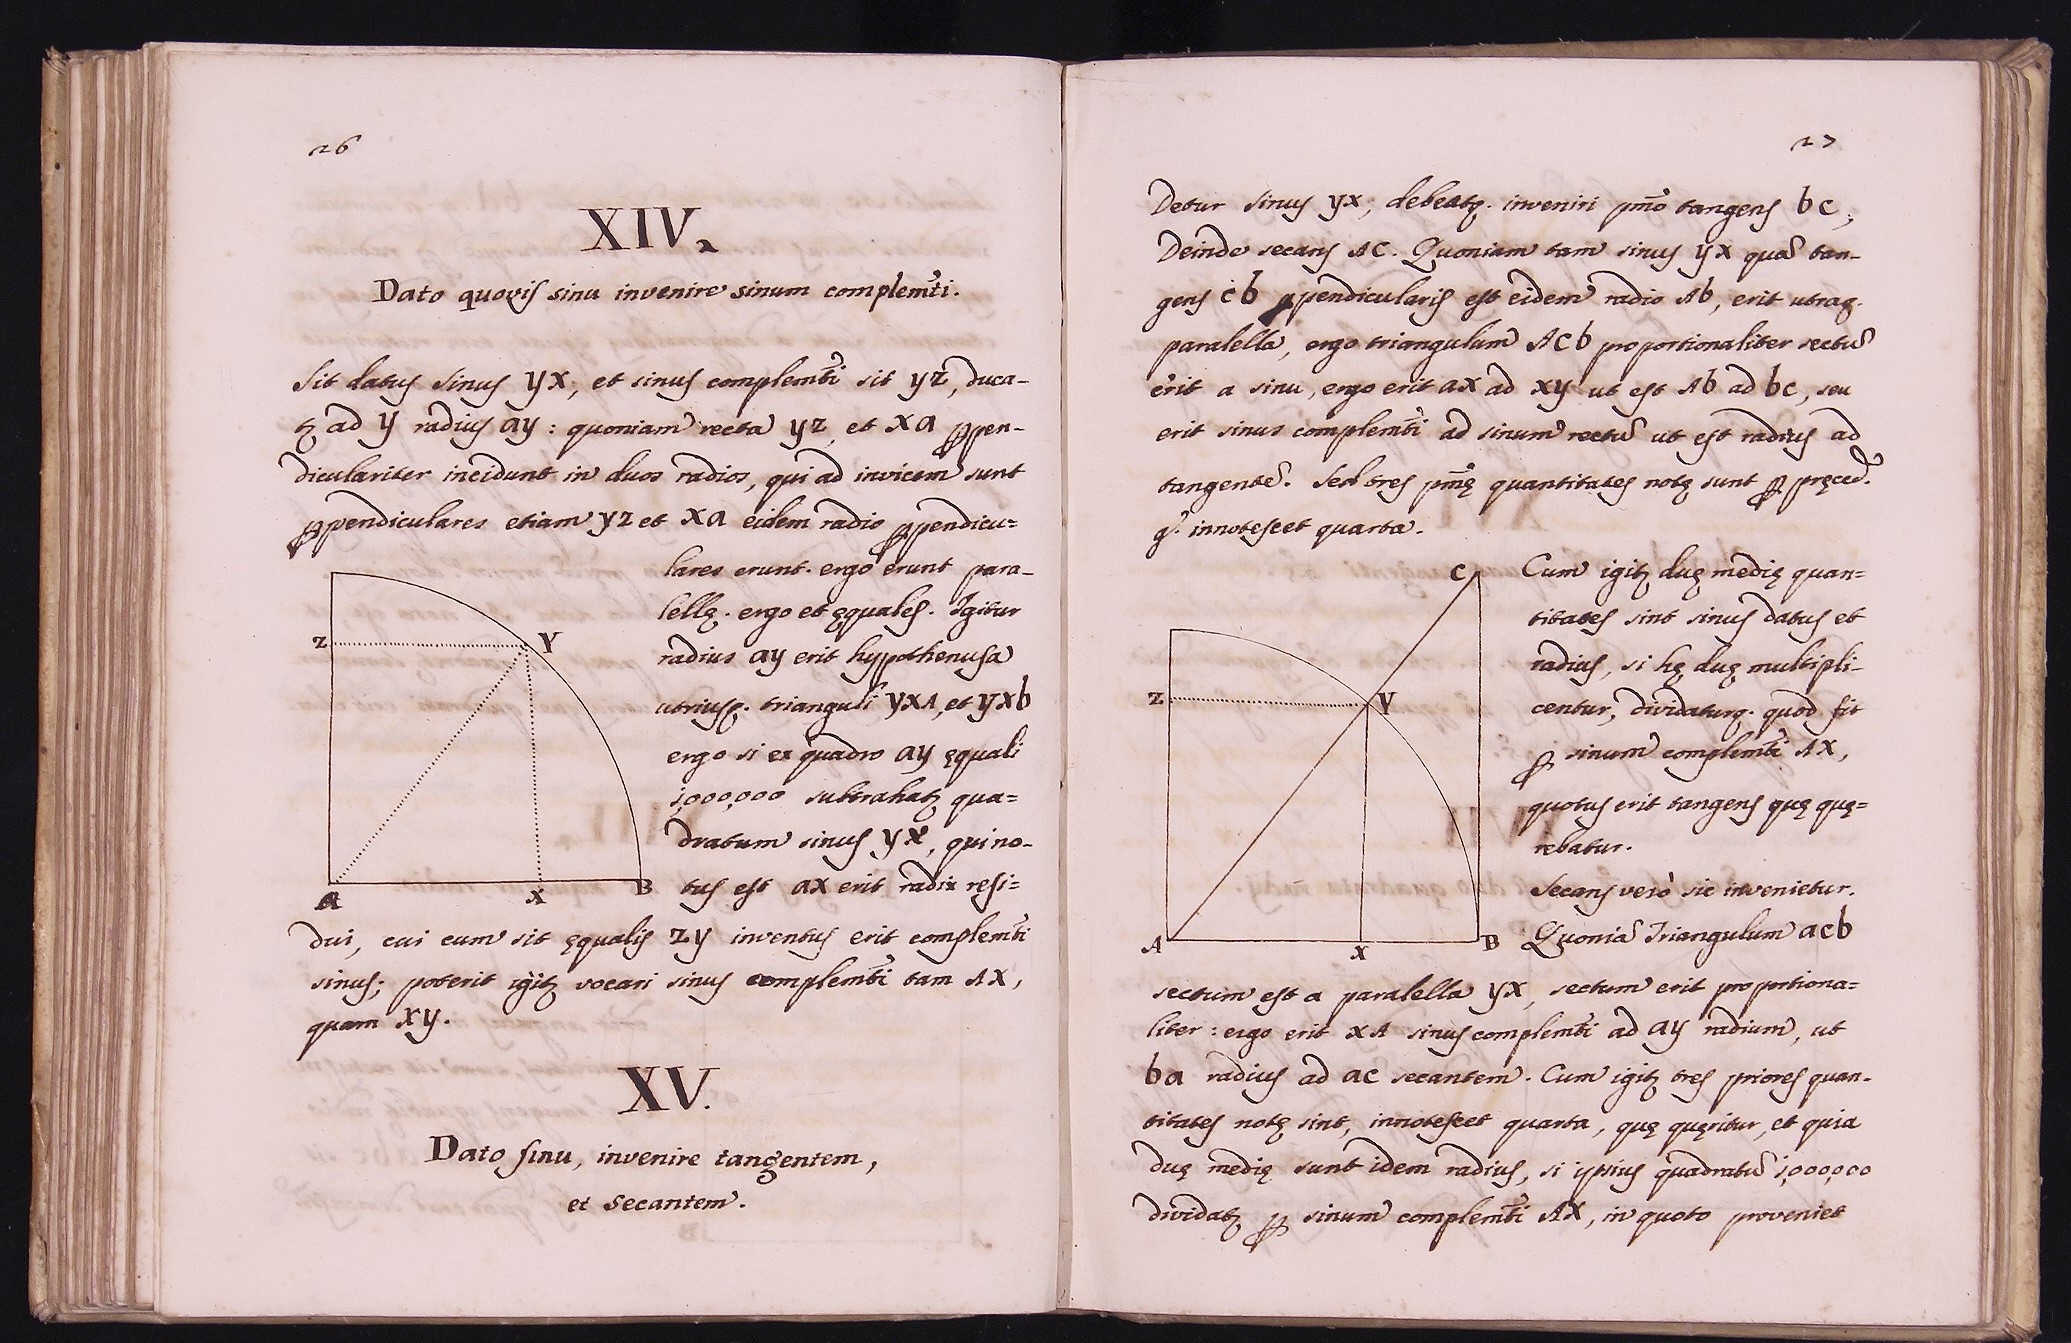 26
XIV.
Dato quovis sinu invenire sinum complemti.
Sit datus sinus yx, et sinus complemti sit yz, duca-
tʒ ad y radius ay: quoniam recta yz, et xa ꝑpen-
diculariter incidunt in duos radios, qui ad invicem sunt
ꝑpendiculares etiam yz et xa eidem radio ꝑpendicu=
lares erunt. ergo erunt para-
lellę. ergo et ęquales. Igitur
radius ay erit hyppothenusa
utriusq. trianguli yxA, et yxb
ergo si ex quadro ay ęquali
1,000,000 subtrahatʒ qua=
dratum sinus yx, qui no-
tus est ax erit radix resi=
dui, cui cum sit ęqualis zy inventus erit complemti
sinus; poterit igitʒ vocari sinus complemti tam AX,
quam xy.
Z Y
A X B
XV.
Dato sinu, invenire tangentem,
et secantem.
27
Detur sinus yx, debeatq. inveniri pmo tangens bc;
Deinde secans AC. Quoniam tam sinus yx quā tan-
gens cb ꝑpendicularis est eidem radio Ab, erit utraq.
paralella, ergo triangulum Acb proportionaliter sectū
erit a sinu, ergo erit ax ad xy ut est Ab ad bc, seu
erit sinus complemti ad sinum rectū ut est radius ad
tangentē. Sed tres pmę quantitates notę sunt ꝑ pręced.
g. innotescet quarta.
Cum igitʒ duę medię quan=
titates sint sinus datus et
radius, si hę duę multipli-
centur, dividaturq. quod fit
ꝑ sinum complemti AX,
quotus erit tangens quę quę=
rebatur.
Secans verò sic invenietur.
Quoniā Triangulum acb
C
Z Y
A X B
sectum est a paralella yx, sectum erit proportiona=
liter: ergo erit xA sinus complemti ad ay radium, ut
ba radius ad ac secantem. Cum igitʒ tres priores quan-
titates notę sint, innotescet quarta, quę quęritur, et quia
duę medię sunt idem radius, si ipsius quadratū 1,000,000
dividatʒ ꝑ sinum complemti AX, in quoto proveniet